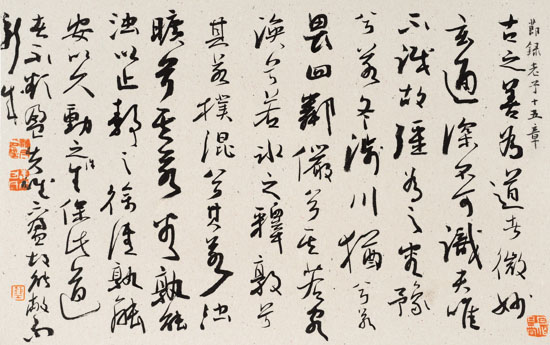 節錄老子十五章
古之善為道者微妙
玄通深不可識夫唯
不識故強為之容豫
兮若冬涉川猶兮若
畏四鄰儼兮其若客
渙兮若冰之釋敦兮
其若樸混兮其若濁
曠兮其若谷孰能
濁以止靜之徐清孰能
安以久動之徐生保此道
者不欲盈夫唯不盈故能敝而
新成